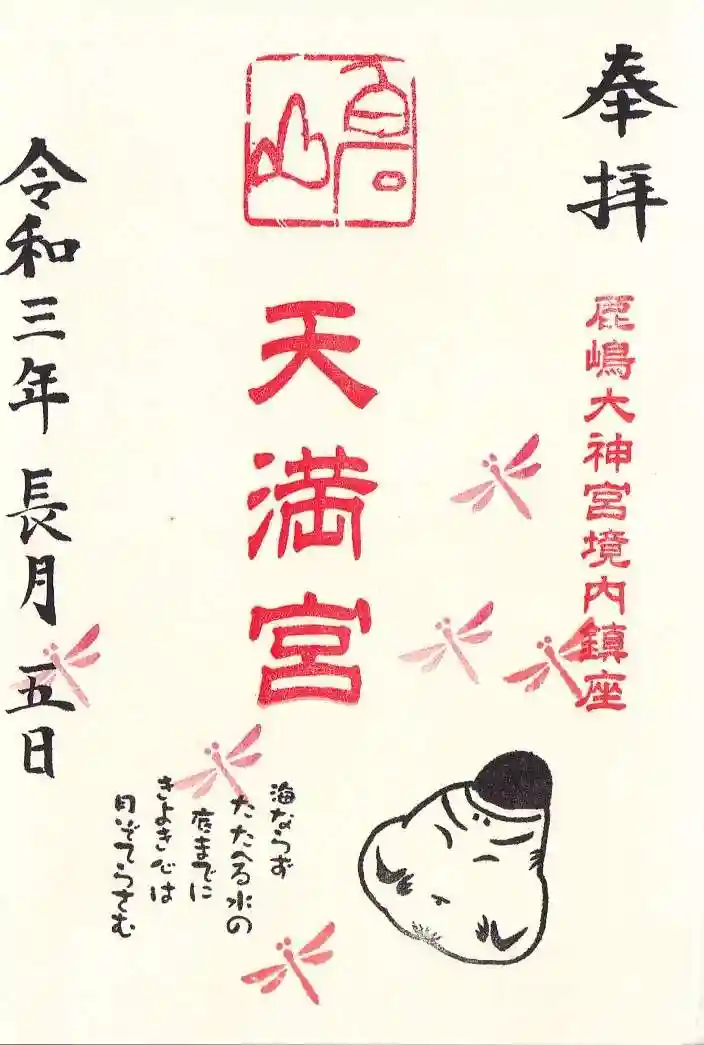 奉拝
鹿嶋大神宮境内鎮座
天満宮
海ならず
たたへる水の
底までに
きよき心は
月ぞてらさむ
令和三年長月五日